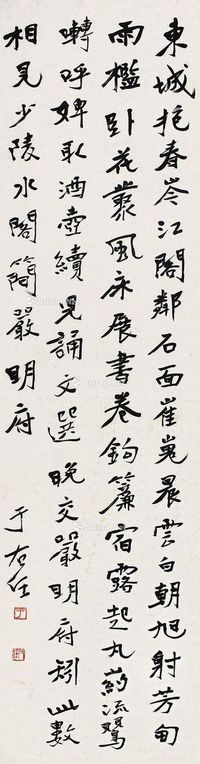 東城抱春岑江閣鄰石面崔嵬晨雲白朝旭射芳甸
雨檻臥花叢風床展書卷鈎簾宿露起丸藥流鶯
囀呼婢取酒壺續兒誦文選晚交嚴明府矧此數
相見少陵水閣簡嚴明府
于右任